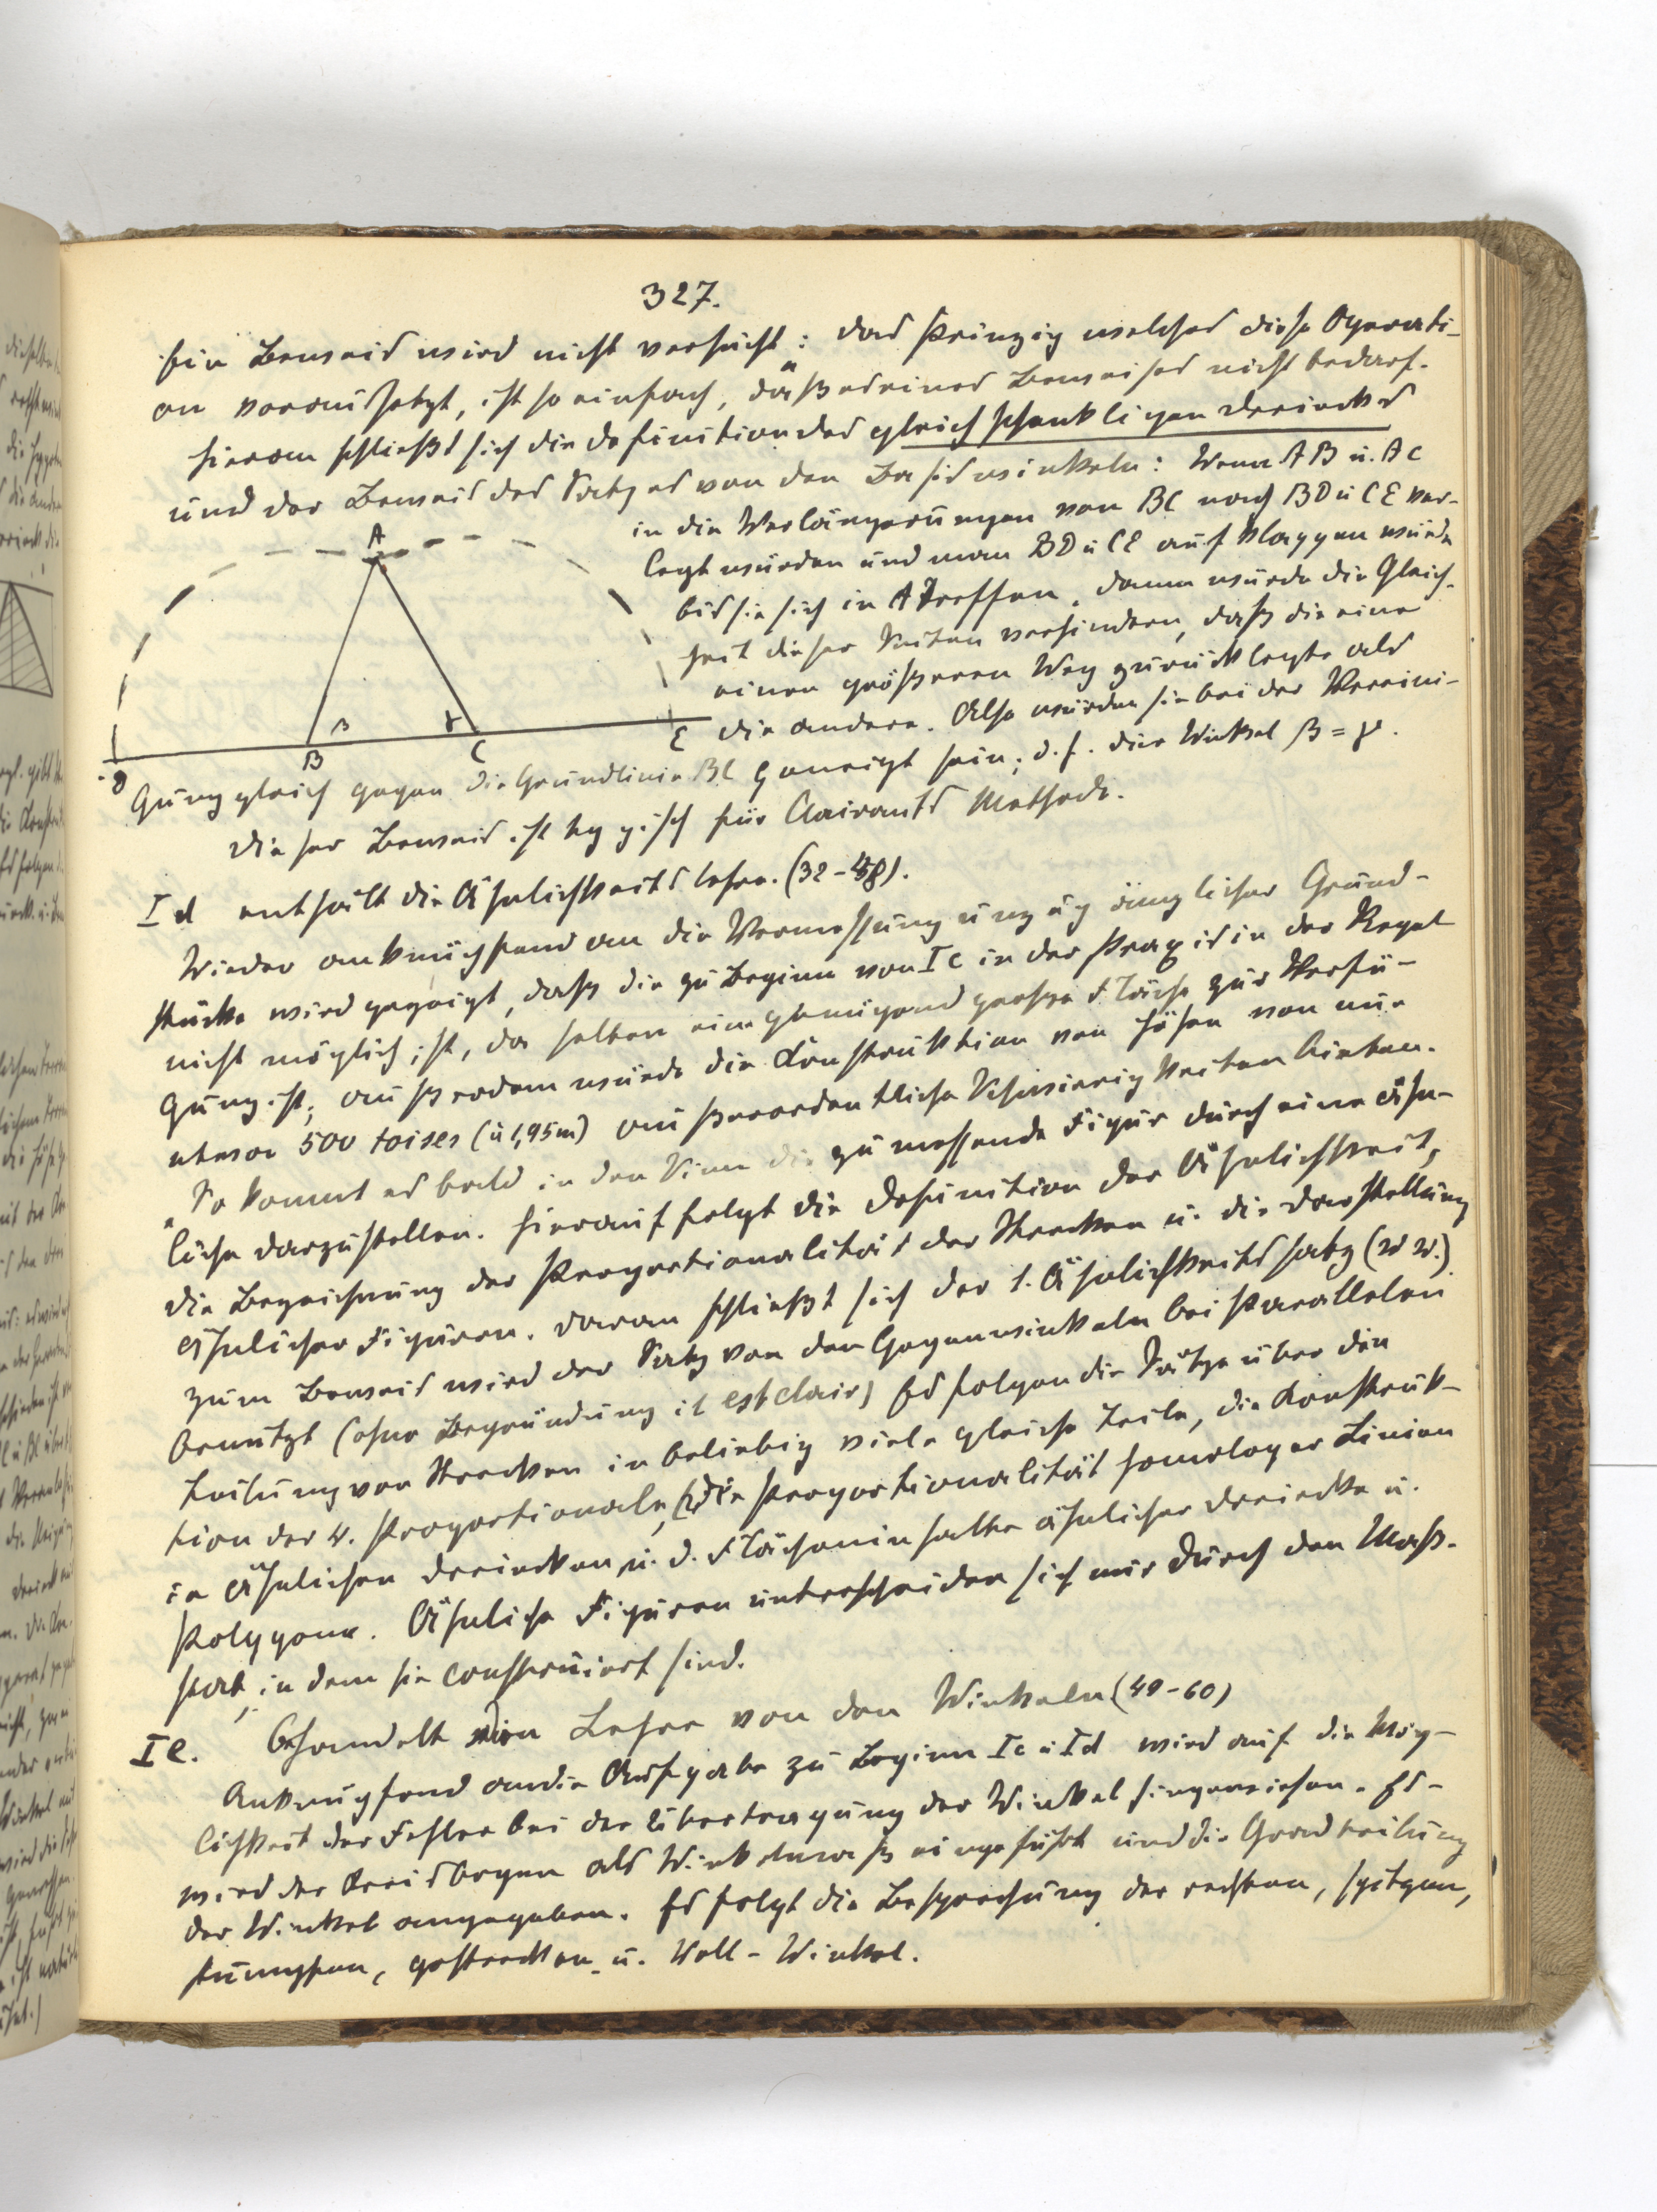 327.
Ein Beweis wird nicht versucht: „das Prinzip welches diese Operati-
on voraussetzt, ist so einfach, daß es eines Beweises nicht bedarf.
Hieran schließt sich die Definition des gleichschenkligen Dreiecks
und der Beweis des Satzes von den Basiswinkeln: Wenn AB u. AC
in die Verlängerungen von BC nach BD u CE ver-
legt würden und man BD u CE aufklappen würde
bis sie sich in A treffen, dann würde die Gleich-
heit dieser Seiten verhindern, daß die eine
einen größeren Weg zurücklegte als
die andere. Also würden sie bei der Vereini-
gung gleich gegen die Grundlinie BC geneigt sein; d.h. die Winkel β = γ.
A
β
γ
D
B
C
E
Dieser Beweis ist typisch für Clairauts Methode.
Id enthält die Ähnlichkeitslehre. (32-48).
Wieder anknüpfend an die Vermessung unzugänglicher Grund-
stücke wird gezeigt, daß die zu Beginn von Ic in der Praxis in der Regel
nicht möglich ist, da selten eine genügend große Fläche zur Verfü-
gung ist; außerdem würde die Konstruktion von Höhen von nur
etwa 500 toises (à 1,95m) außerordentliche Schwierigkeiten bieten.
„So kommt es bald in den Sinn die zu messende Figur durch eine ähn-
liche darzustellen. Hierauf folgt die Definition der Ähnlichkeit,
die Bezeichnung der Proportionalität der Strecken u. die Darstellung
ähnlicher Figuren. Daran schließt sich der 1. Ähnlichkeitssatz (w w.)
Zum Beweis wird der Satz von den Gegenwinkeln bei Parallelen
benutzt (ohne Begründung il est clair) Es folgen die Sätze über die
Teilung von Strecken in beliebig viele gleiche Teile, die Konstruk-
tion der 4. Proportionale, die Proportionalität homologer Linien
in ähnlichen Dreiecken u. d. Flächeninhalte ähnlicher Dreiecke u.
Polygone. Ähnliche Figuren unterscheiden sich nur durch den Maß-
stab, in dem sie construiert sind.
Ie. Behandelt die Lehre von den Winkeln (49-60)
Anknüpfend an die Aufgabe zu Beginn Ic u Id wird auf die Mög-
lichkeit der Fehler bei der Übertragung der Winkel hingewiesen. Es
wird der Kreisbogen als Winkelmaß eingeführt und die Gradteilung
der Winkel angegeben. Es folgt die Besprechung der rechten, spitzen,
stumpfen, gestreckten u. Voll-Winkel.